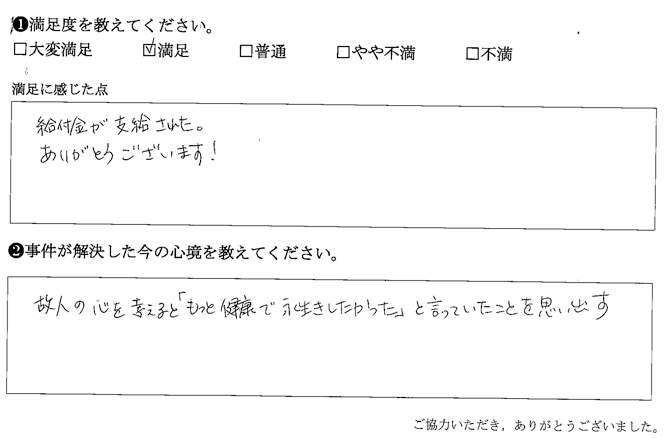 ❶満足度を教えてください。
□大変満足 ☑満足 □普通 □やや不満 □不満
満足に感じた点
給付金が支給された。
ありがとうございます!
❷事件が解決した今の心境を教えてください。
故人の心を考えると「もっと健康で永生きしたかった」と言っていたことを思い出す
ご協力いただき，ありがとうございました。